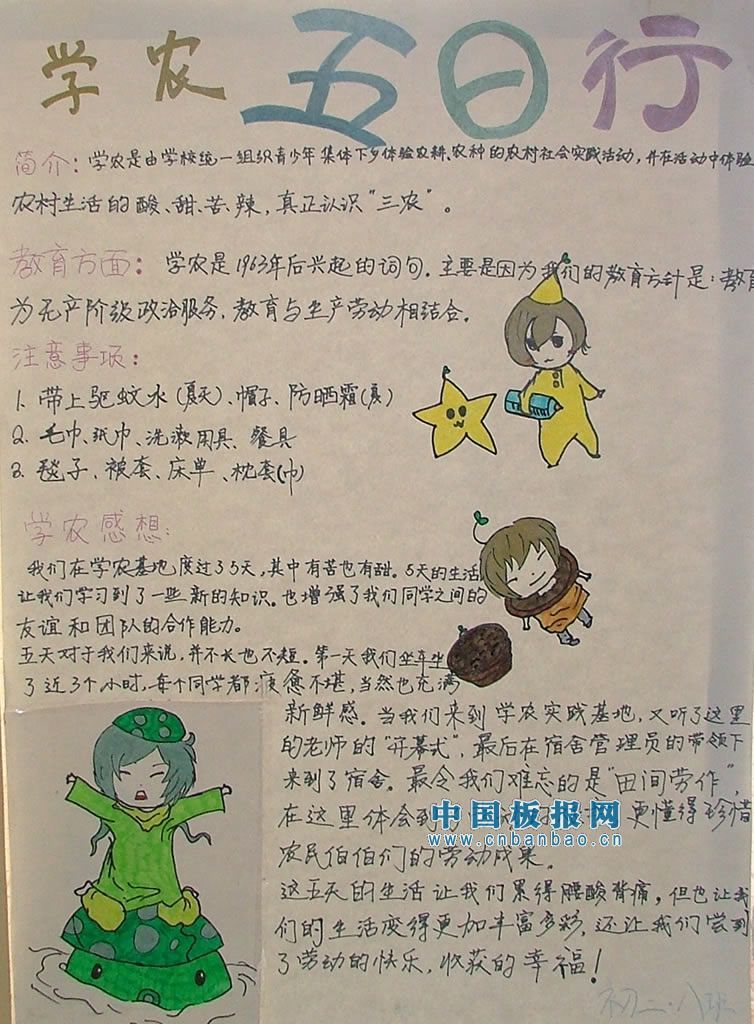 学农五日行
简介：学农是由学校统一组织青少年集体下乡体验农耕、农种的农村社会实践活动，并在活动中体验
农村生活的酸、甜、苦、辣，真正认识"三农"。
教育方面：学农是1963年后兴起的词句．主要是因为我们的教育方针是：教育
为无产阶级政治服务，教育与生产劳动相结合。
注意事项：
1. 带上驱蚊水（夏天）、帽子、防晒霜（夏）
2. 毛巾、纸巾、洗漱用具、餐具
3. 毯子、被套、床单、枕套（巾）
学农感想：
我们在学农基地度过了5天，其中有苦也有甜。5天的生活
让我们学习到了一些新的知识。也增强了我们同学之间的
友谊和团队的合作能力。
五天对于我们来说，并不长也不短。第一天我们坐车坐
了近3个小时，每个同学都疲惫不堪，当然也充满
新鲜感。当我们来到学农实践基地，又听了这里
的老师的"开幕式"，最后在宿舍管理员的带领下
来到了宿舍。最令我们难忘的是"田间劳作"，
在这里体会到 更懂得珍惜
农民伯伯们的劳动成果。
这五天的生活让我们累得腰酸背痛，但也让我
们的生活变得更加丰富多彩，还让我们尝到
了劳动的快乐，收获的幸福！
初二·八班
中国板报网
www.cnbanbao.cn